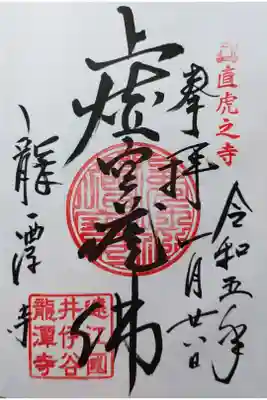 直虎之寺
奉拝
令和五年
一月廿六日
虚空蔵佛
龍潭寺
遠江國
井伊谷
龍潭寺